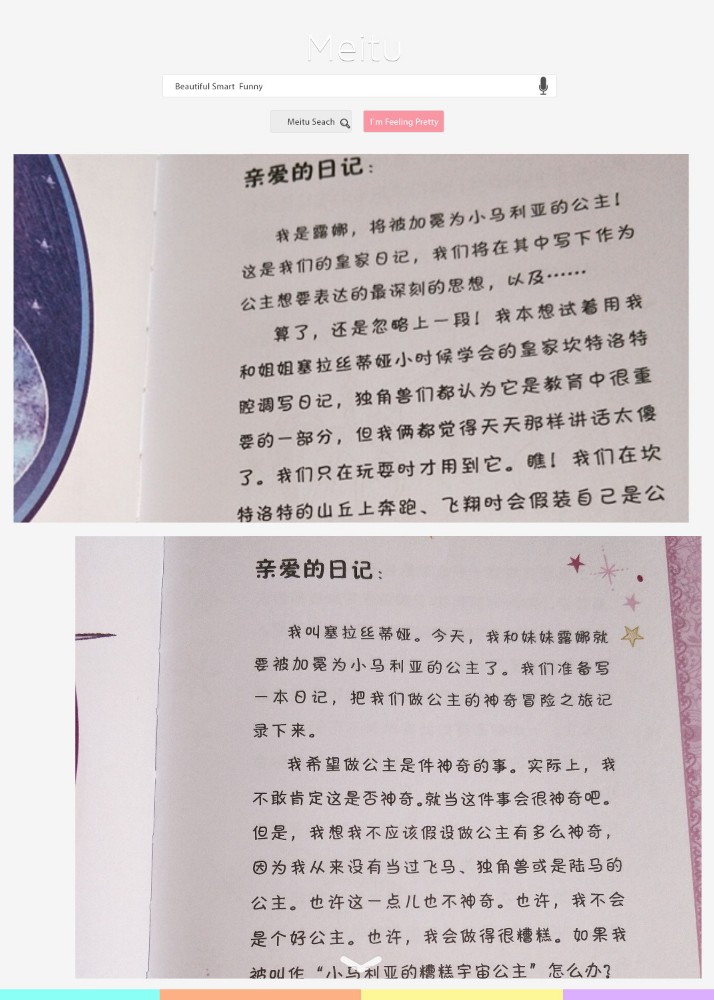 Meitu
Beautiful Smart Funny
Meitu Seach
I'm Feeling Pretty
亲爱的日记：
我是露娜，将被加冕为小马利亚的公主！
这是我们的皇家日记，我们将在其中写下作为
公主想要表达的最深刻的思想，以及……
算了，还是忽略上一段！我本想试着用我
和姐姐塞拉丝蒂娅小时候学会的皇家坎特洛特
腔调写日记，独角兽们都认为它是教育中很重
要的一部分，但我俩都觉得天天那样讲话太傻
了。我们只在玩耍时才用到它。瞧！我们在坎
特洛特的山丘上奔跑、飞翔时会假装自己是公
亲爱的日记：
我叫塞拉丝蒂娅。今天，我和妹妹露娜就
要被加冕为小马利亚的公主了。我们准备写
一本日记，把我们做公主的神奇冒险之旅记
录下来。
我希望做公主是件神奇的事。实际上，我
不敢肯定这是否神奇。就当这件事会很神奇吧。
但是，我想我不应该假设做公主有多么神奇，
因为我从来没有当过飞马、独角兽或是陆马的
公主。也许这一点儿也不神奇。也许，我不会
是个好公主。也许，我会做得很糟糕。如果我
被叫作“小马利亚的糟糕宇宙公主”怎么办？